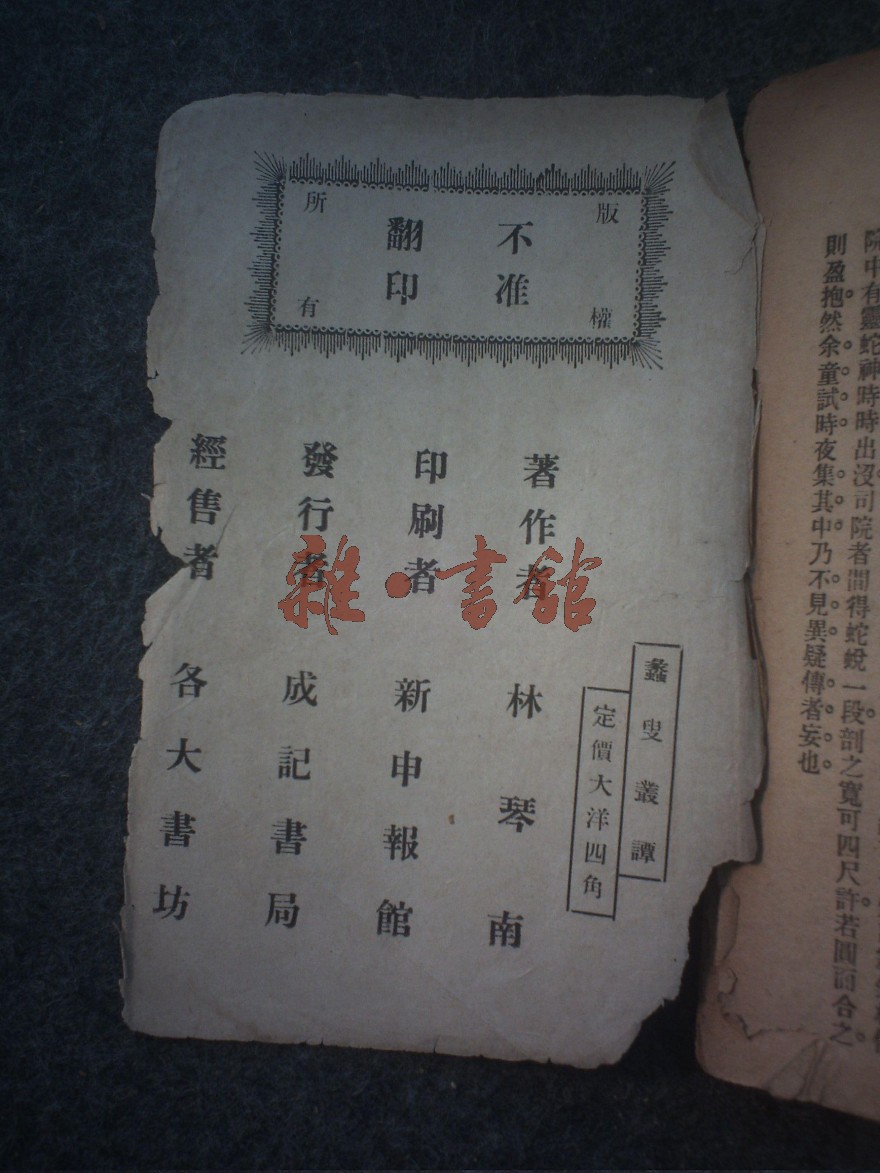 院中有靈蛇神時時出沒司院者間得蛇蛻一段剖之寬可四尺許若圓而合之
則盈抱然余童試時夜集其中乃不見異疑傳者妄也
版權
所有
不准
翻印
蠡叟叢譚
定價大洋四角
著作者 林琴南
印刷者 新申報館
發行者 成記書局
經售者 各大書坊
雜·書館